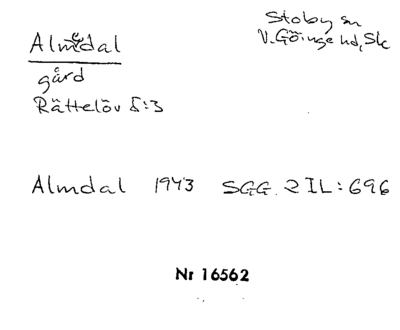 Almedal
Stoby sn
V. Göinge hd, Sk
gård
Rättelöv 5:3
Almdal 1943 SGG. 2 IL: 696
Nr 16562